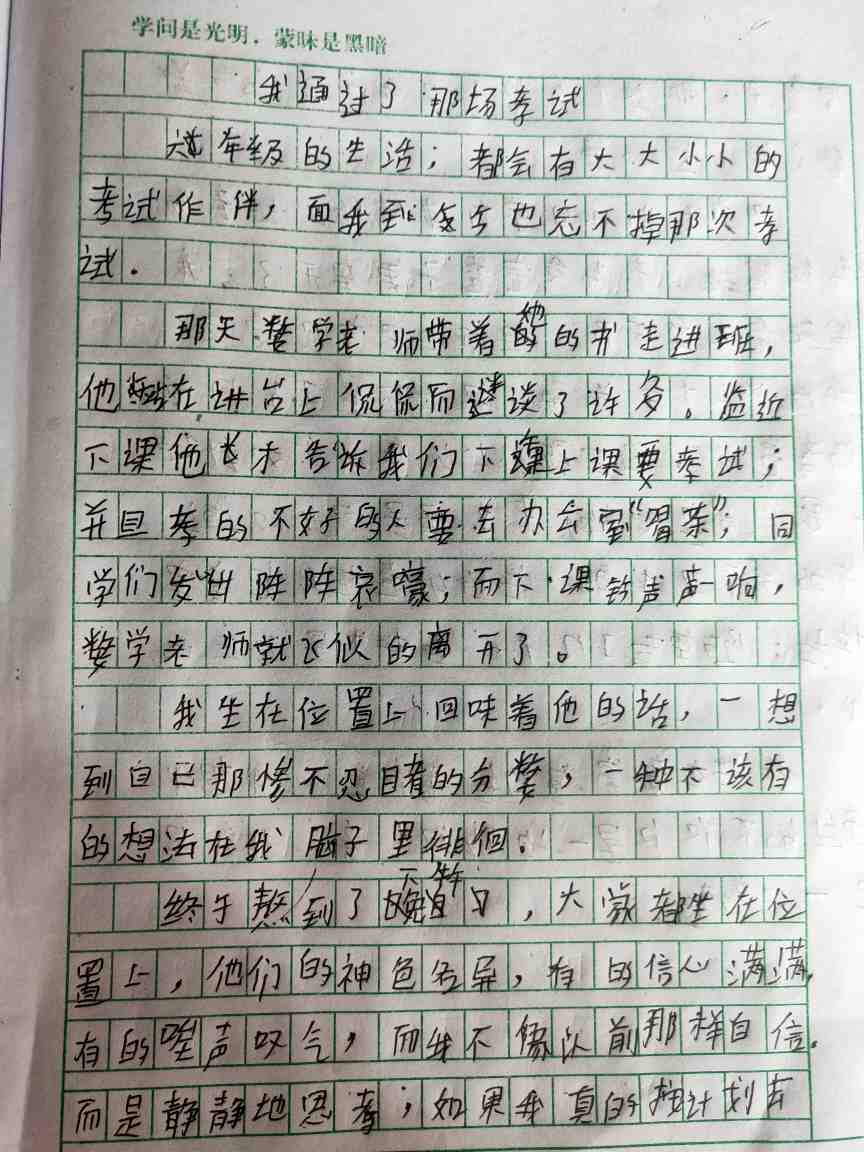 学问是光明，蒙昧是黑暗
我通过了那场考试
六年级的生活；都会有大大小小的
考试作伴，面我到今也忘不掉那次考
试.
那天数学老师带着他的书走进班，
他站在讲台上侃侃而谈了许多。临近
下课他才告诉我们下课上课要考试；
并且考的不好的人要去办公室"冒茶"；同
学们发出阵阵哀嚎；而下课铃声声一响，
数学老师就飞似的离开了。
我坐在位置上回味着他的话，一想
到自己那惨不忍睹的分数，一种不该有
的想法在我脑子里徘徊.
终于熬到了下午，大家都坐在位
置上，他们的神色各异，有的信心满满，
有的唉声叹气，而我不像以前那样自信.
而是静静地思考；如果我真的按计划去